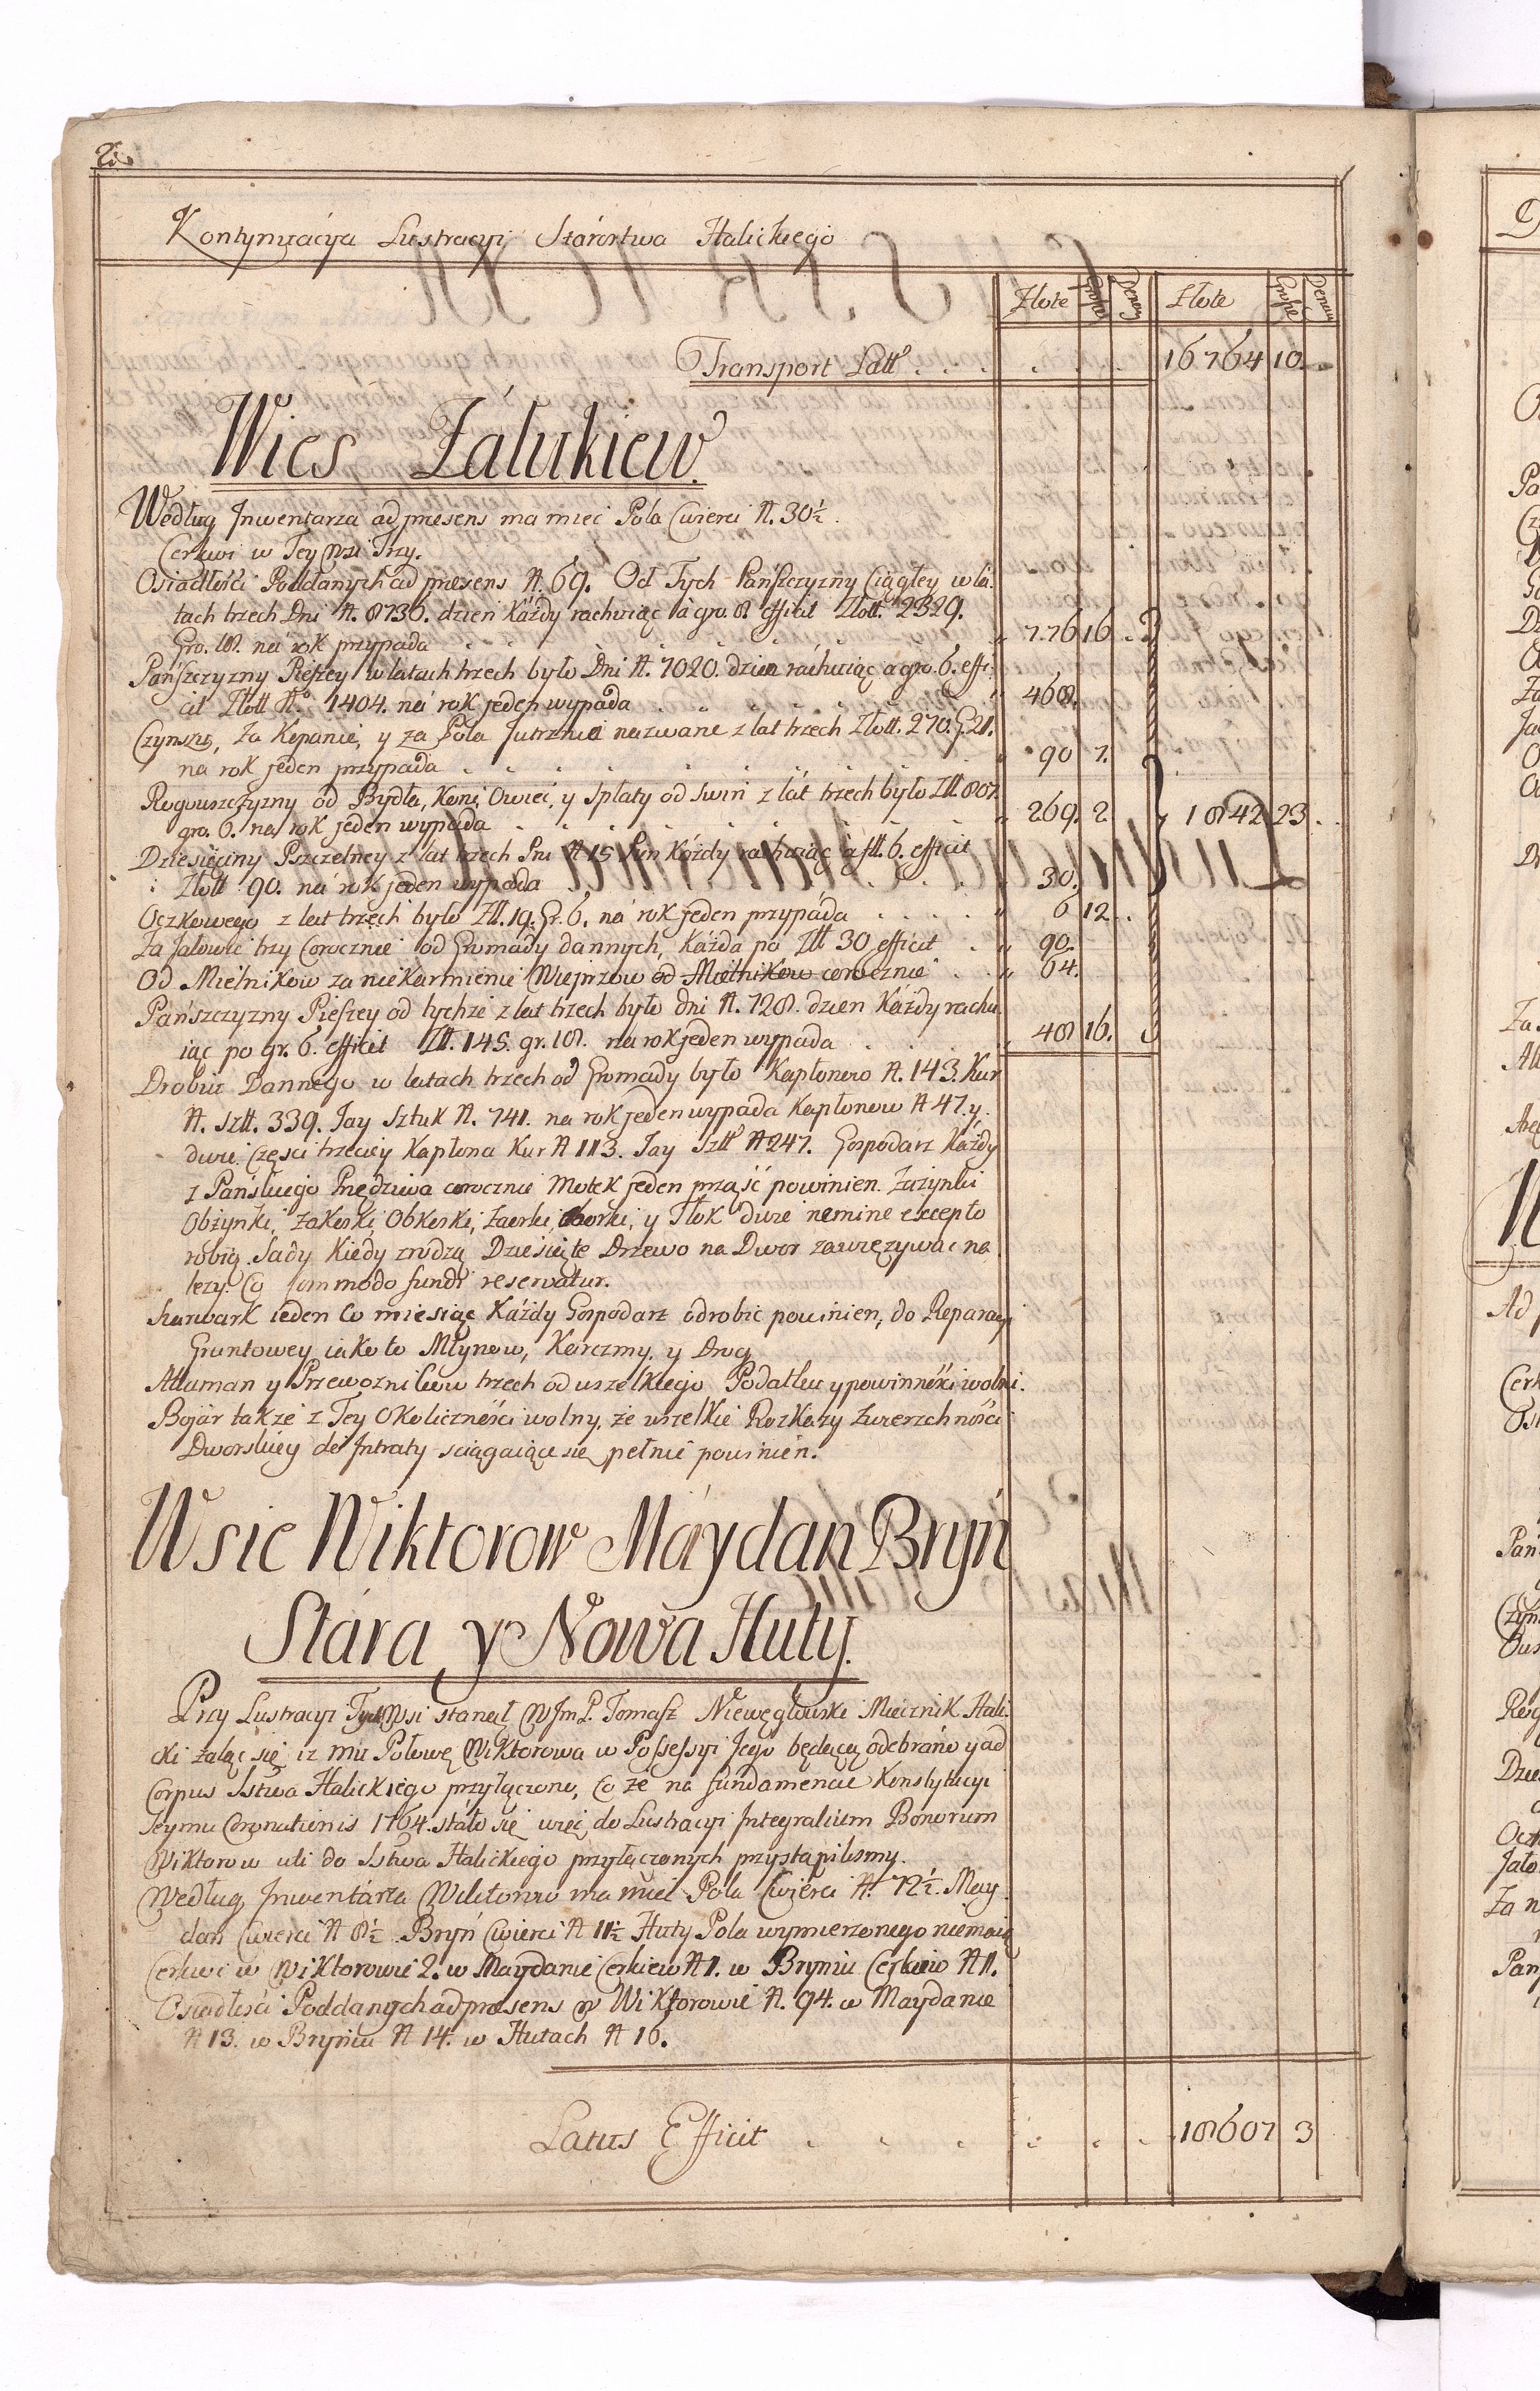 Kontynuácya Lustracyi Stárostwa Halickiego
Złote Grosze Denar Złote Grosze Denar
Transport Latt. . . . . . . 16764 10 .
Wies Załukiew.
Według Inwentarza ad præsens ma mieć Pola Cwierci N. 30½.
Cerkwi w Tey Wsi Trzy.
Osiadłości Poddanych ad præsens N. 69. Od Tych Pańszczyzny Ciągłey w la-
tach trzech Dni N. 8736. dzień Kázdy rachuiąc à gro. 8. efficit Złott. 2329.
Gro. 18. ná rok przypada . . . 776 16 .
Pańszczyzny Pieszey w latach trzech było Dni N. 7020. dzien ráchuiąc a gro. 6. effi-
cit Złott N. 1404. ná rok jeden wypáda . . . 468.
Czynszu, Za Kopanie, y za Pola Jutrznia nazwane z lat trzech Złott. 270. G 21.
na rok jeden przypáda . . . 90 7.
Rogowszczyzny od Bydła, Koni, Owiec, y Spłaty od Swiń z lát trzech było Złł 807.
gro. 6. na rok jeden wypáda . . . 269. 2 1842 23 . .
Dziesięciny Pszczelney z lat trzech Pni N 15 Pień Kózdy rachuiąc à fl. 6. efficit
Złott 90. ná rok jeden wypáda . . . 30.
Oczkowego z lat trzech było Złł. 19. Gr. 6. ná rok jeden przypáda . . . 6 12 . .
Za Jałowic trzy Corocznie od Gromády dannych, Kázda po Złł 30 efficit . . 90.
Od Mielnikow za niekarmienie Wieprzow od Mielnikow corocznie . . 64.
Pańszczyzny Pieszey od tychże z lat trzech było dni N. 728. dzien Kázdy rachu-
iąc po gr. 6. efficit Złł. 145. gr. 18. na rok jeden wypáda . . . 48 16.
Drobiu Dannego w latach trzech od Gromády było Kapłonow N. 143. Kur
N. sztt. 339. Jay Sztuk N. 741. na rok jeden wypada Kapłonow N 47. y
dwie Częsci trzeciey Kapłona Kur N 113. Jay Sztt N 247. Gospodarz Kázdy
z Pańskiego Przędziwa corocznie Motek jeden prząść powinien. Zażynki
Obżynki, Zakoski, Obkoski, Zaorki, Oborki, y Tłok dwie nemine excepto
robią. Sady Kiedy zrodzą Dziesiąte Drzewo na Dwor zawięzywać na-
leży. Co Commodo fundi reservatur.
Szarwark ieden Co miesiąc Kázdy Gospodarz odrobić powinien, do Reparacyi
Gruntowey iako to Młynow, Karczmy, y Drog
Attaman y Przewoznikow trzech od wszelkiego Podatku y powinności wolni.
Bojár takze z Tey Okoliczności wolny, że wszelkie Rozkazy Zwierzchności
Dworskiey do Intraty ściągaiące się pełnić powinien.
Wsie Wiktorow Máydan Bryń
Stára y Nowa Huty.
Przy Lustracyi Tych Wsi stanął WJm P. Tomasz Niewęgłowski Miecznik Hali-
cki żaląc się iz mu Połowę Wiktorowa w Possessyi Jego będącą odebráno y ad
Corpus Sstwa Halickiego przyłączono, Co że na fundamencie Konstytucyi
Seymu Coronationis 1764. stáło się więc do Lustracyi Integralium Bonorum
Wiktorow uti do Sstwa Halickiego przyłączonych przystąpilismy.
Według Inwentárza Wiktorow ma mieć Pola Cwierci N. 72½. May-
dan Cwierci N 8½ Bryń Cwierci N 11½ Huty Pola wymierzonego niemaią
Cerkwi w Wiktorowie 2. w Maydanie Cerkiew N 1. w Bryniu Cerkiew N 1.
Osiadłości Poddanych ad præsens w Wiktorowie N. 94. w Maydanie
N 13. w Bryniu N 14. w Hutach N 16.
Latus Efficit . . . . . . 18607 3